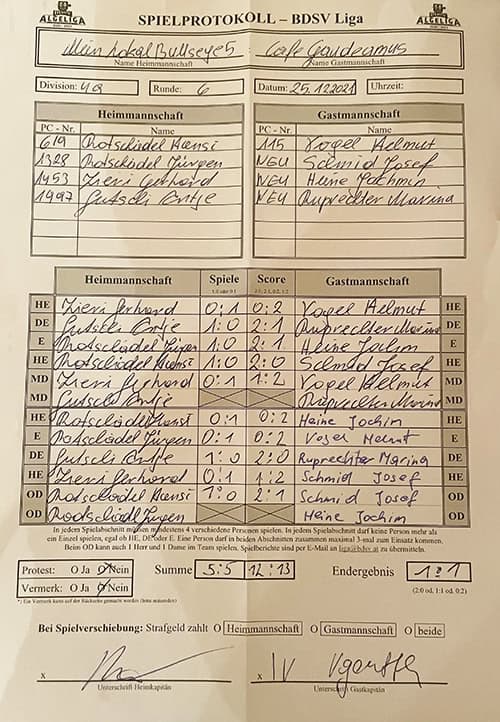 ALGELIGA SPIELPROTOKOLL – BDSV Liga ALGELIGA
Mein Lokal Bullseye 5 - Cafe Gaudeamus
Name Heimmannschaft Name Gastmannschaft
Division: 4a Runde: 6 Datum: 25.12.2021 Uhrzeit:
Heimmannschaft Gastmannschaft
PC - Nr. Name PC - Nr. Name
619 Rotschädel Hansi 115 Vogel Helmut
1328 Rotschädel Jürgen NEU Schmid Josef
1453 Zieri Gerhard NEU Heine Jochim
1997 Gutschi Antje NEU Ruprechter Marina
Heimmannschaft Spiele Score Gastmannschaft
1:0 oder 0:1 2:0, 2:1, 0:2, 1:2
HE Zieri Gerhard 0:1 0:2 Vogel Helmut HE
DE Gutschi Antje 1:0 2:1 Ruprechter Marina DE
E Rotschädel Jürgen 1:0 2:1 Heine Jochim E
HE Rotschädel Hansi 1:0 2:0 Schmid Josef HE
MD Zieri Gerhard 0:1 1:2 Vogel Helmut MD
MD Gutschi Antje Ruprechter Marina MD
HE Rotschädel Hansi 0:1 0:2 Heine Jochim HE
E Rotschädel Jürgen 0:1 0:2 Vogel Helmut E
DE Gutschi Antje 1:0 2:0 Ruprechter Marina DE
HE Zieri Gerhard 0:1 1:2 Schmid Josef HE
OD Rotschädel Hansi 1:0 2:1 Schmid Josef OD
OD Rodschädel Jürgen Heine Jochim OD
In jedem Spielabschnitt müssen mindestens 4 verschiedene Personen spielen. In jedem Spielabschnitt darf keine Person mehr als
ein Einzel spielen, egal ob HE, DE oder E. Eine Person darf in beiden Abschnitten zusammen maximal 3-mal zum Einsatz kommen.
Beim OD kann auch 1 Herr und 1 Dame im Team spielen. Spielberichte sind per E-Mail an liga@bdsv.at zu übermitteln.
Protest: O Ja O Nein Summe 5:5 12:13 Endergebnis 1:1
Vermerk: O Ja O Nein (2:0 od. 1:1 od. 0:2)
*) Ein Vermerk kann auf der Rückseite gemacht werden (bitte ausmalen)
Bei Spielverschiebung: Strafgeld zahlt O Heimmannschaft O Gastmannschaft O beide
x x
Unterschrift Heimkapitän Unterschrift Gastkapitän